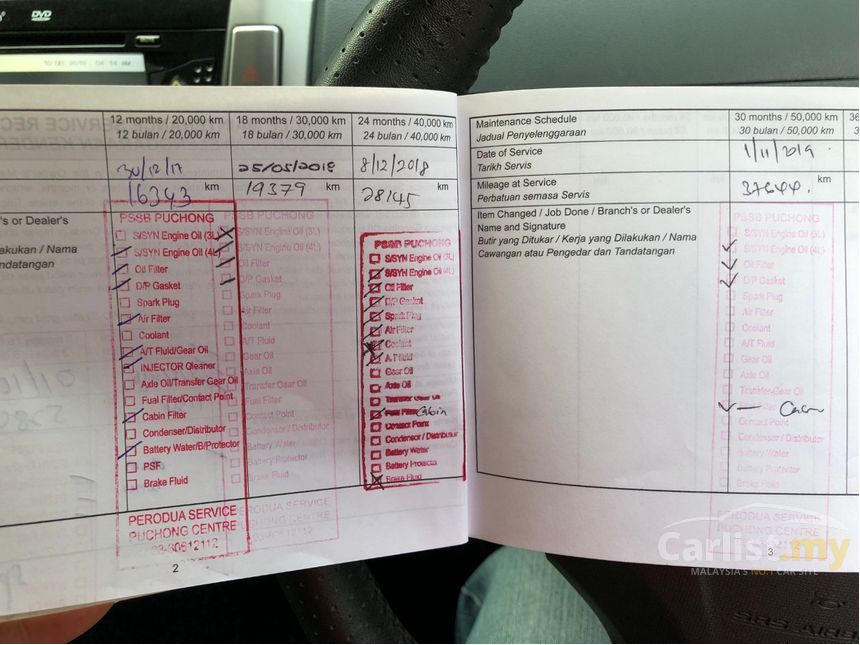 DVD
12 months / 20,000 km
12 bulan / 20,000 km
18 months / 30,000 km
18 bulan / 30,000 km
24 months / 40,000 km
24 bulan / 40,000 km
30/12/17
25/05/2018
8/12/2018
16343 km
19379 km
28145 km
's or Dealer's
akukan / Nama
ndatangan
PSSB PUCHONG
S/SYN Engine Oil (3L)
S/SYN Engine Oil (4L)
Oil Filter
D/P Gasket
Spark Plug
Air Filter
Coolant
A/T Fluid/Gear Oil
INJECTOR Cleaner
Axle Oil/Transfer Gear Oil
Fuel Filter/Contact Point
Cabin Filter
Condenser/Distributor
Battery Water/B/Protector
PSF
Brake Fluid
PERODUA SERVICE
PUCHONG CENTRE
PSSB PUCHONG
S/SYN Engine Oil (3L)
S/SYN Engine Oil (4L)
Oil Filter
D/P Gasket
Spark Plug
Air Filter
Coolant
A/T Fluid
Gear Oil
Axle Oil
Transfer Gear Oil
Fuel Filter
Contact Point
Condensor / Distributor
Battery Water
Battery Protector
Brake Fluid
PSSB PUCHONG
S/SYN Engine Oil (3L)
S/SYN Engine Oil (4L)
Oil Filter
D/P Gasket
Spark Plug
Air Filter
Coolant
A/T Fluid
Gear Oil
Axle Oil
Transfer Gear Oil
Fuel Filter Cabin
Contact Point
Condensor / Distributor
Battery Water
Battery Protector
Brake Fluid
2
Maintenance Schedule
Jadual Penyelenggaraan
30 months / 50,000 km
30 bulan / 50,000 km
Date of Service
Tarikh Servis
1/11/2019
Mileage at Service
Perbatuan semasa Servis
37644 km
Item Changed / Job Done / Branch's or Dealer's
Name and Signature
Butir yang Ditukar / Kerja yang Dilakukan / Nama
Cawangan atau Pengedar dan Tandatangan
PSSB PUCHONG
S/SYN Engine Oil (3L)
S/SYN Engine Oil (4L)
Oil Filter
D/P Gasket
Spark Plug
Air Filter
Coolant
A/T Fluid
Gear Oil
Axle Oil
Transfer Gear Oil
Contact Point
Condensor / Distributor
Battery Water
Battery Protector
Brake Fluid
PERODUA SERVICE
PUCHONG CENTRE
3
Carlist.my
MALAYSIA'S NO.1 CAR SITE